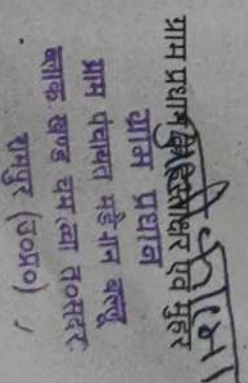 ग्राम प्रधान के हस्ताक्षर एवं मुहर
ग्राम प्रधान
ग्राम पंचायत मड़ैयान कल्लू
ब्लाक खण्ड चमरव्वा त०सदर
रामपुर (उ०प्र०)